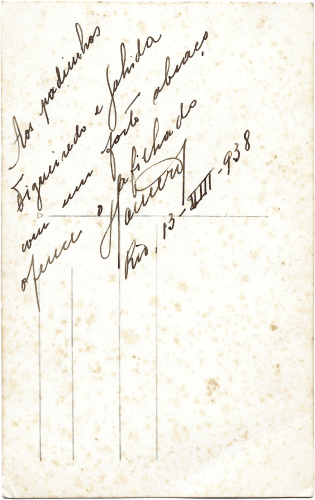 Aos padinhos
Figueiredo e Zahida
com um forte abraço
oferece o afilhado
Rio, 13-VIII-938